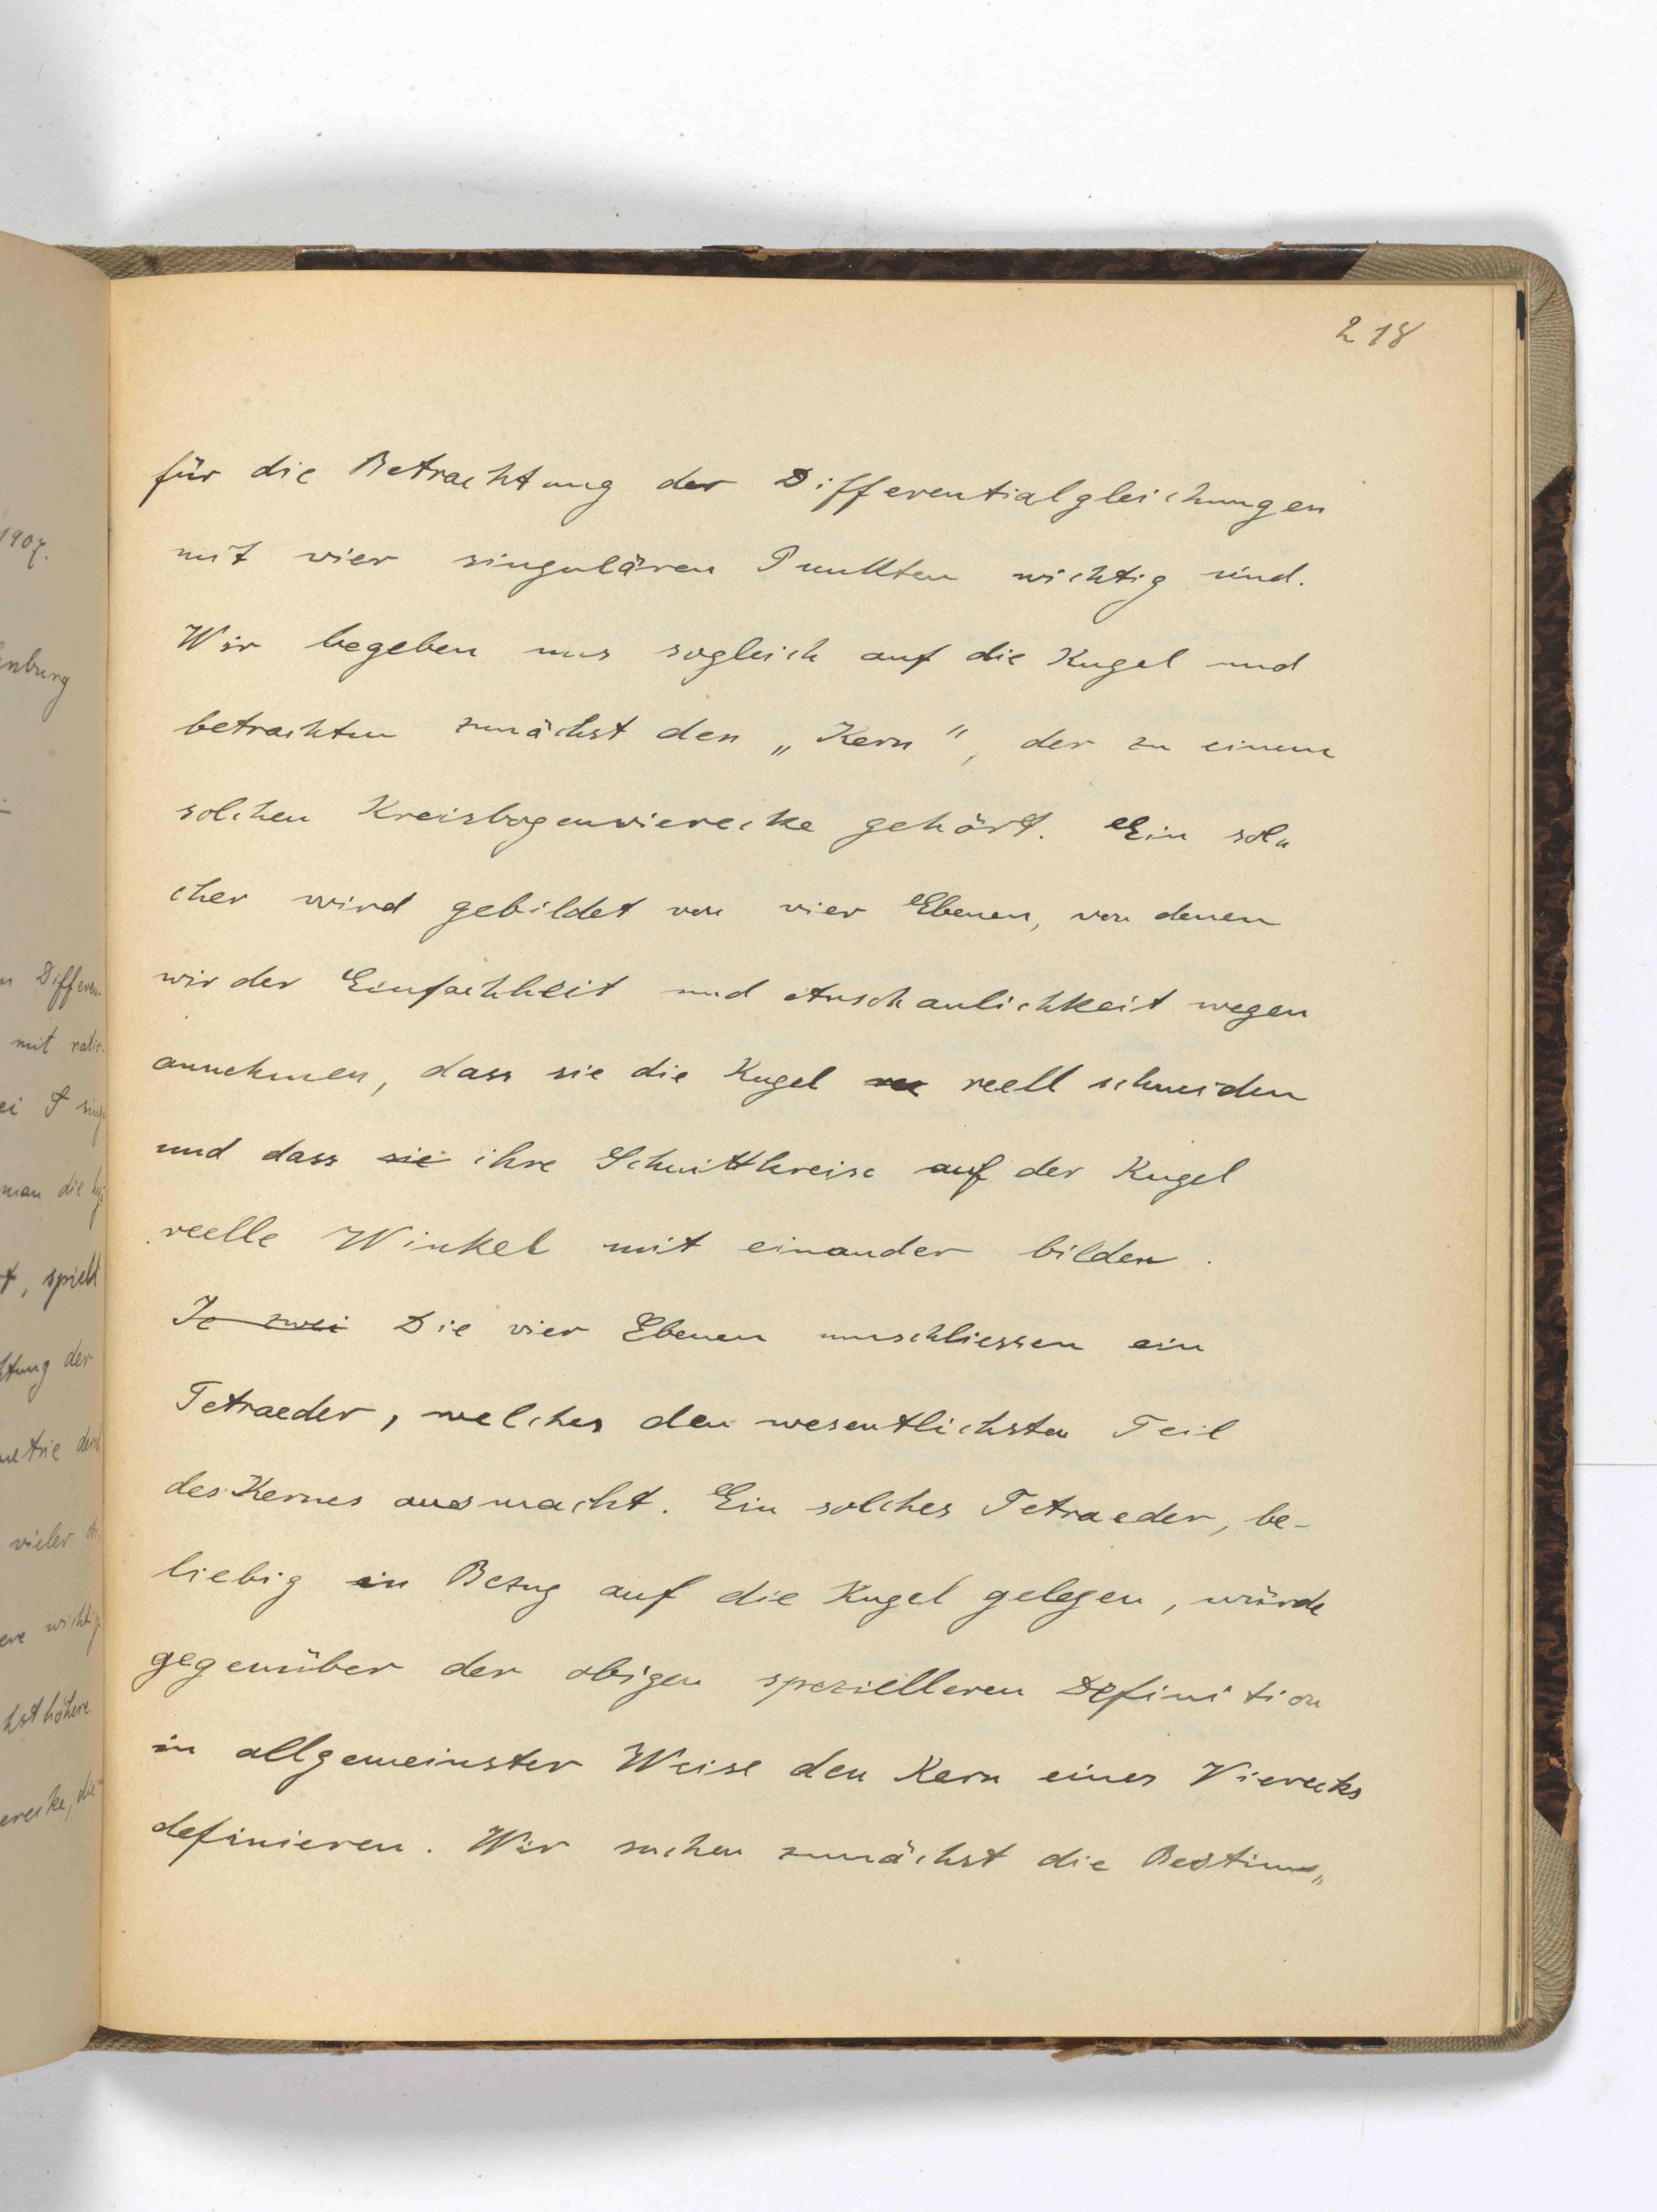 218
für die Betrachtung der Differentialgleichungen
mit vier singulären Punkten wichtig sind.
Wir begeben uns sogleich auf die Kugel und
betrachten zunächst den „Kern", der zu einem
solchen Kreisbogenvierecke gehört. Ein sol„
cher wird gebildet von vier Ebenen, von denen
wir der Einfachheit und Anschaulichkeit wegen
annehmen, dass sie die Kugel reell schneiden
und dass sie ihre Schnittkreise auf der Kugel
reelle Winkel mit einander bilden.
Je zwei Die vier Ebenen umschliessen ein
Tetraeder, welches den wesentlichsten Teil
des Kernes ausmacht. Ein solches Tetraeder, be-
liebig in Bezug auf die Kugel gelegen, würde
gegenüber der obigen spezielleren Definition
in allgemeinster Weise den Kern eines Vierecks
definieren. Wir suchen zunächst die Bestim„
1907.
enburg
n Differen-
mit ratio-
ei
man die
t, spielt
htung der
metrie
vieler
ere wichtig
hst höhere
erecke, die